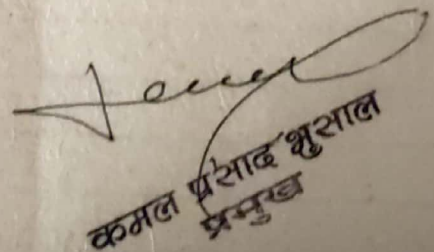 कमल प्रसाद भुसाल
प्रमुख